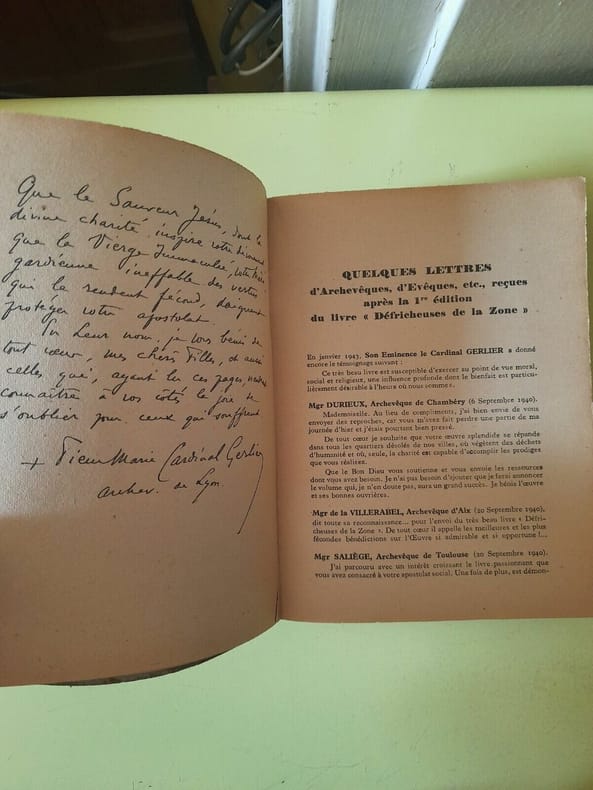 Que le Sauveur Jésus, dont la
divine charité inspire votre dévouement
que la Vierge Immaculée, votre
gardienne ineffable des vertus
qui le rendent fécond, daignent
protéger votre apostolat.
En Leur nom, je vous bénis de
tout cœur, mes chères Filles, et aussi
celles qui, ayant lu ces pages,
connaître à vos côtés la joie de
s'oublier pour ceux qui souffrent
+ Pierre Marie Cardinal Gerlier
archev. de Lyon.
QUELQUES LETTRES
d'Archevêques, d'Evêques, etc., reçues
après la 1re édition
du livre « Défricheuses de la Zone »
En janvier 1943, Son Eminence le Cardinal GERLIER a donné
encore le témoignage suivant :
Ce très beau livre est susceptible d'exercer au point de vue moral,
social et religieux, une influence profonde dont le bienfait est particu-
lièrement désirable à l'heure où nous sommes.
Mgr DURIEUX, Archevêque de Chambéry (6 Septembre 1940).
Mademoiselle. Au lieu de compliments, j'ai bien envie de vous
envoyer des reproches, car vous m'avez fait perdre une partie de ma
journée d'hier et j'étais pourtant bien pressé.
De tout cœur je souhaite que votre œuvre splendide se répande
dans tous les quartiers désolés de nos villes, où végètent des déchets
d'humanité et où, seule, la charité est capable d'accomplir les prodiges
que vous réalisez.
Que le Bon Dieu vous soutienne et vous envoie les ressources
dont vous avez besoin. Je n'ai pas besoin d'ajouter que je ferai annoncer
le volume qui, je n'en doute pas, aura un grand succès. Je bénis l'œuvre
et ses bonnes ouvrières.
Mgr de la VILLERABEL, Archevêque d'Aix (20 Septembre 1940),
dit toute sa reconnaissance... pour l'envoi du très beau livre « Défri-
cheuses de la Zone ». De tout cœur il appelle les meilleures et les plus
fécondes bénédictions sur l'Œuvre si admirable et si opportune !...
Mgr SALIÈGE, Archevêque de Toulouse (20 Septembre 1940).
J'ai parcouru avec un intérêt croissant le livre passionnant que
vous avez consacré à votre apostolat social. Une fois de plus, est démon-